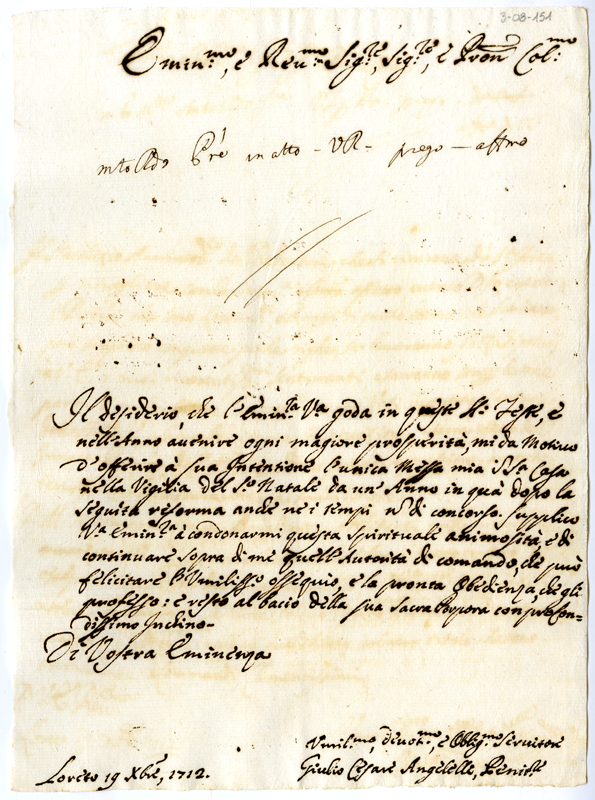 3-08-151
Emin:mo, e Reu:mo Sig:re, Sig:re, e Pron Col:mo
mto Rdo Pre in atto - VR - prego - affmo
Il desiderio, che l'Emin:za Va goda in queste Ste Feste, e
nell'Anno auenire ogni magiore prosperità, mi da Motiuo
d'offerire à sua Intentione l'unica Messa mia in Sta Casa
nella Vigilia del Sto Natale da un'Anno in quà dopo la
seguita reforma anche ne i tempi di concorso. Supplico
Va Emin:za à condonarmi questa spirituale animosità, e di
continuare sopra di me quell'Autorità di comando, che può
felicitare l'Vmiliss:o ossequio, e la pronta Obedienza, che gli
professo: e resto al bacio della sua Sacra Porpora con profon=
dissimo Inchino-
Di Vostra Eminenza
Vmil:mo, diuot:mo, e Oblig:mo Seruitore
Giulio Cesare Angelelli, Penit:re
Loreto 19 Xbre, 1712.